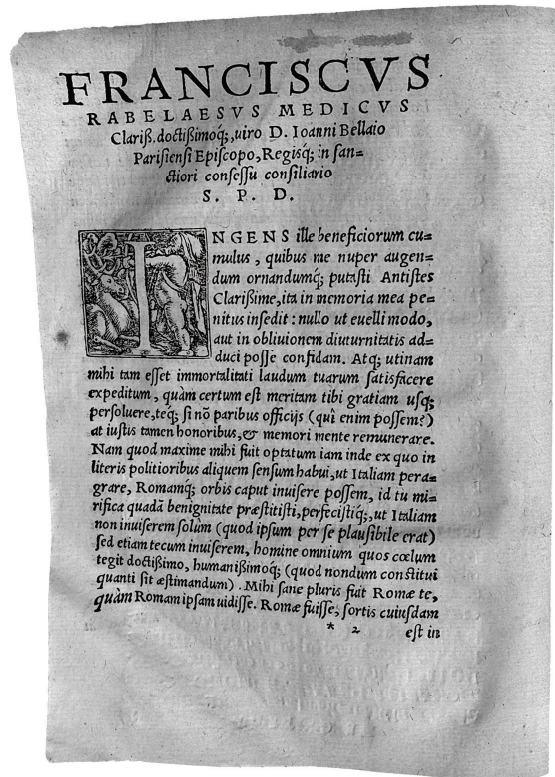 FRANCISCVS
RABELAESVS MEDICVS
Clariß. doctißimoq;, uiro D. Ioanni Bellaio
Parisiensi Episcopo, Regisq; in san=
ctiori consessu consiliario
S. P. D.
INGENS ille beneficiorum cu=
mulus, quibus me nuper augen=
dum ornandumq; putasti Antistes
Clarißime, ita in memoria mea pe=
nitus insedit: nullo ut euelli modo,
aut in obliuionem diuturnitatis ad=
duci posse confidam. Atq; utinam
mihi tam esset immortalitati laudum tuarum satisfacere
expeditum, quàm certum est meritam tibi gratiam usq;
persoluere, teq; si nō paribus officijs (quî enim possem?)
at iustis tamen honoribus, & memori mente remunerare.
Nam quod maxime mihi fuit optatum iam inde ex quo in
literis politioribus aliquem sensum habui, ut Italiam pera=
grare, Romamq; orbis caput inuisere possem, id tu mi=
rifica quadā benignitate præstitisti, perfecistiq;, ut Italiam
non inuiserem solùm (quod ipsum per se plausibile erat)
sed etiam tecum inuiserem, homine omnium quos cœlum
tegit doctißimo, humanißimoq; (quod nondum constitui
quanti sit æstimandum). Mihi sane pluris fuit Romæ te,
quàm Romam ipsam uidisse. Romæ fuisse, sortis cuiusdam
* 2 est in